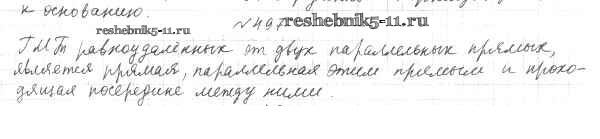 к основанию.
№497 reshebnik5-11.ru
reshebnik5-11.ru
ГМТ равноудалённых от двух параллельных прямых,
является прямая, параллельная этим прямым и прохо-
дящая посередине между ними.